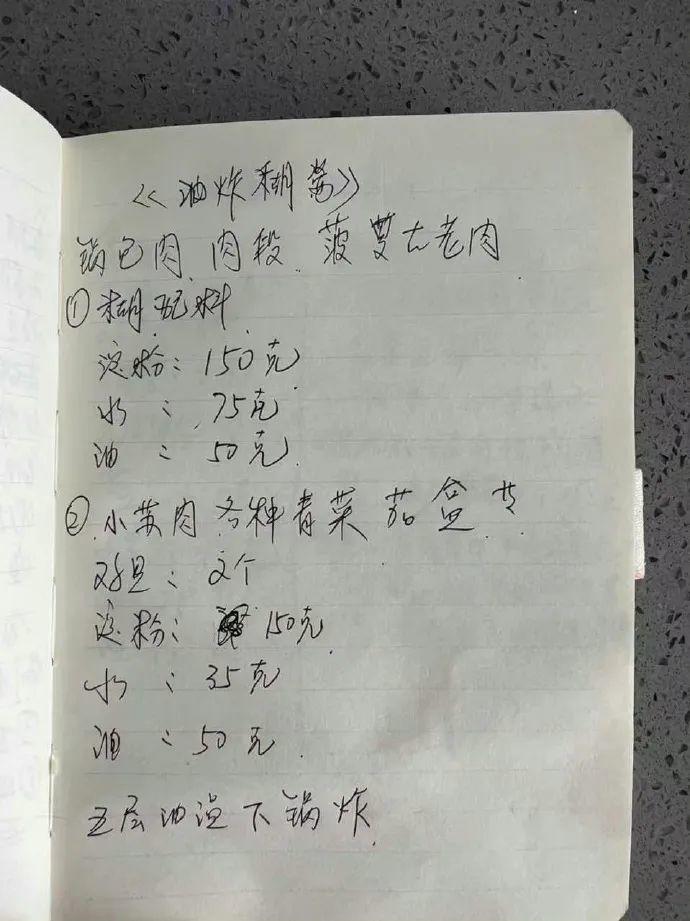 《油炸糊篇》
锅包肉 肉段 菠萝古老肉
① 糊配料
淀粉：150克
水：75克
油：50克
② 小苏肉 各种青菜 茄盒
：2个
淀粉：150克
水：35克
油：50克
五层油温下锅炸